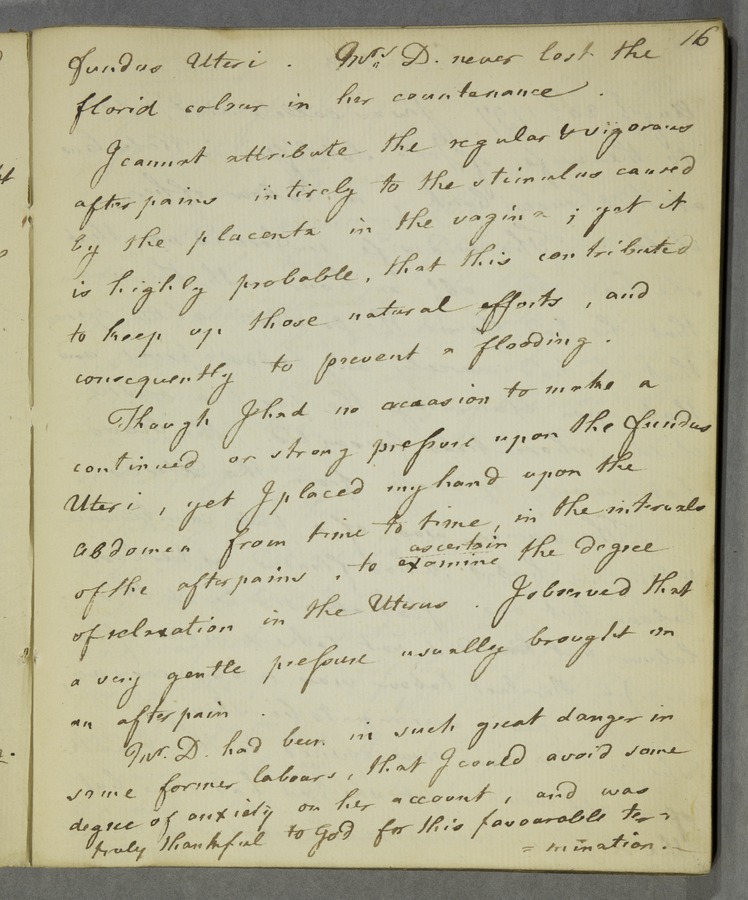 16
fundus Uteri . Mrs. D. never lost the
florid colour in her countenance .
I cannot attribute the regular & vigorous
after pains intirely to the stimulus caused
by the placenta in the vagina ; yet it
is highly probable, that this contributed
to keep up those natural efforts , and
consequently to prevent a flooding .
Though I had no occasion to make a
continued or strong preſsure upon the fundus
Uteri , yet I placed my hand upon the
abdomen from time to time, in the intervals
of the afterpains , to examine the degree
ascertain
of relaxation in the Uterus . I observed that
a very gentle preſsure usually brought on
an after pain .
Mrs. D. had been in such great danger in
some former labours, that I could avoid some
degree of anxiety on her account , and was
truly thankful to God for this favourable ter=
= mination .